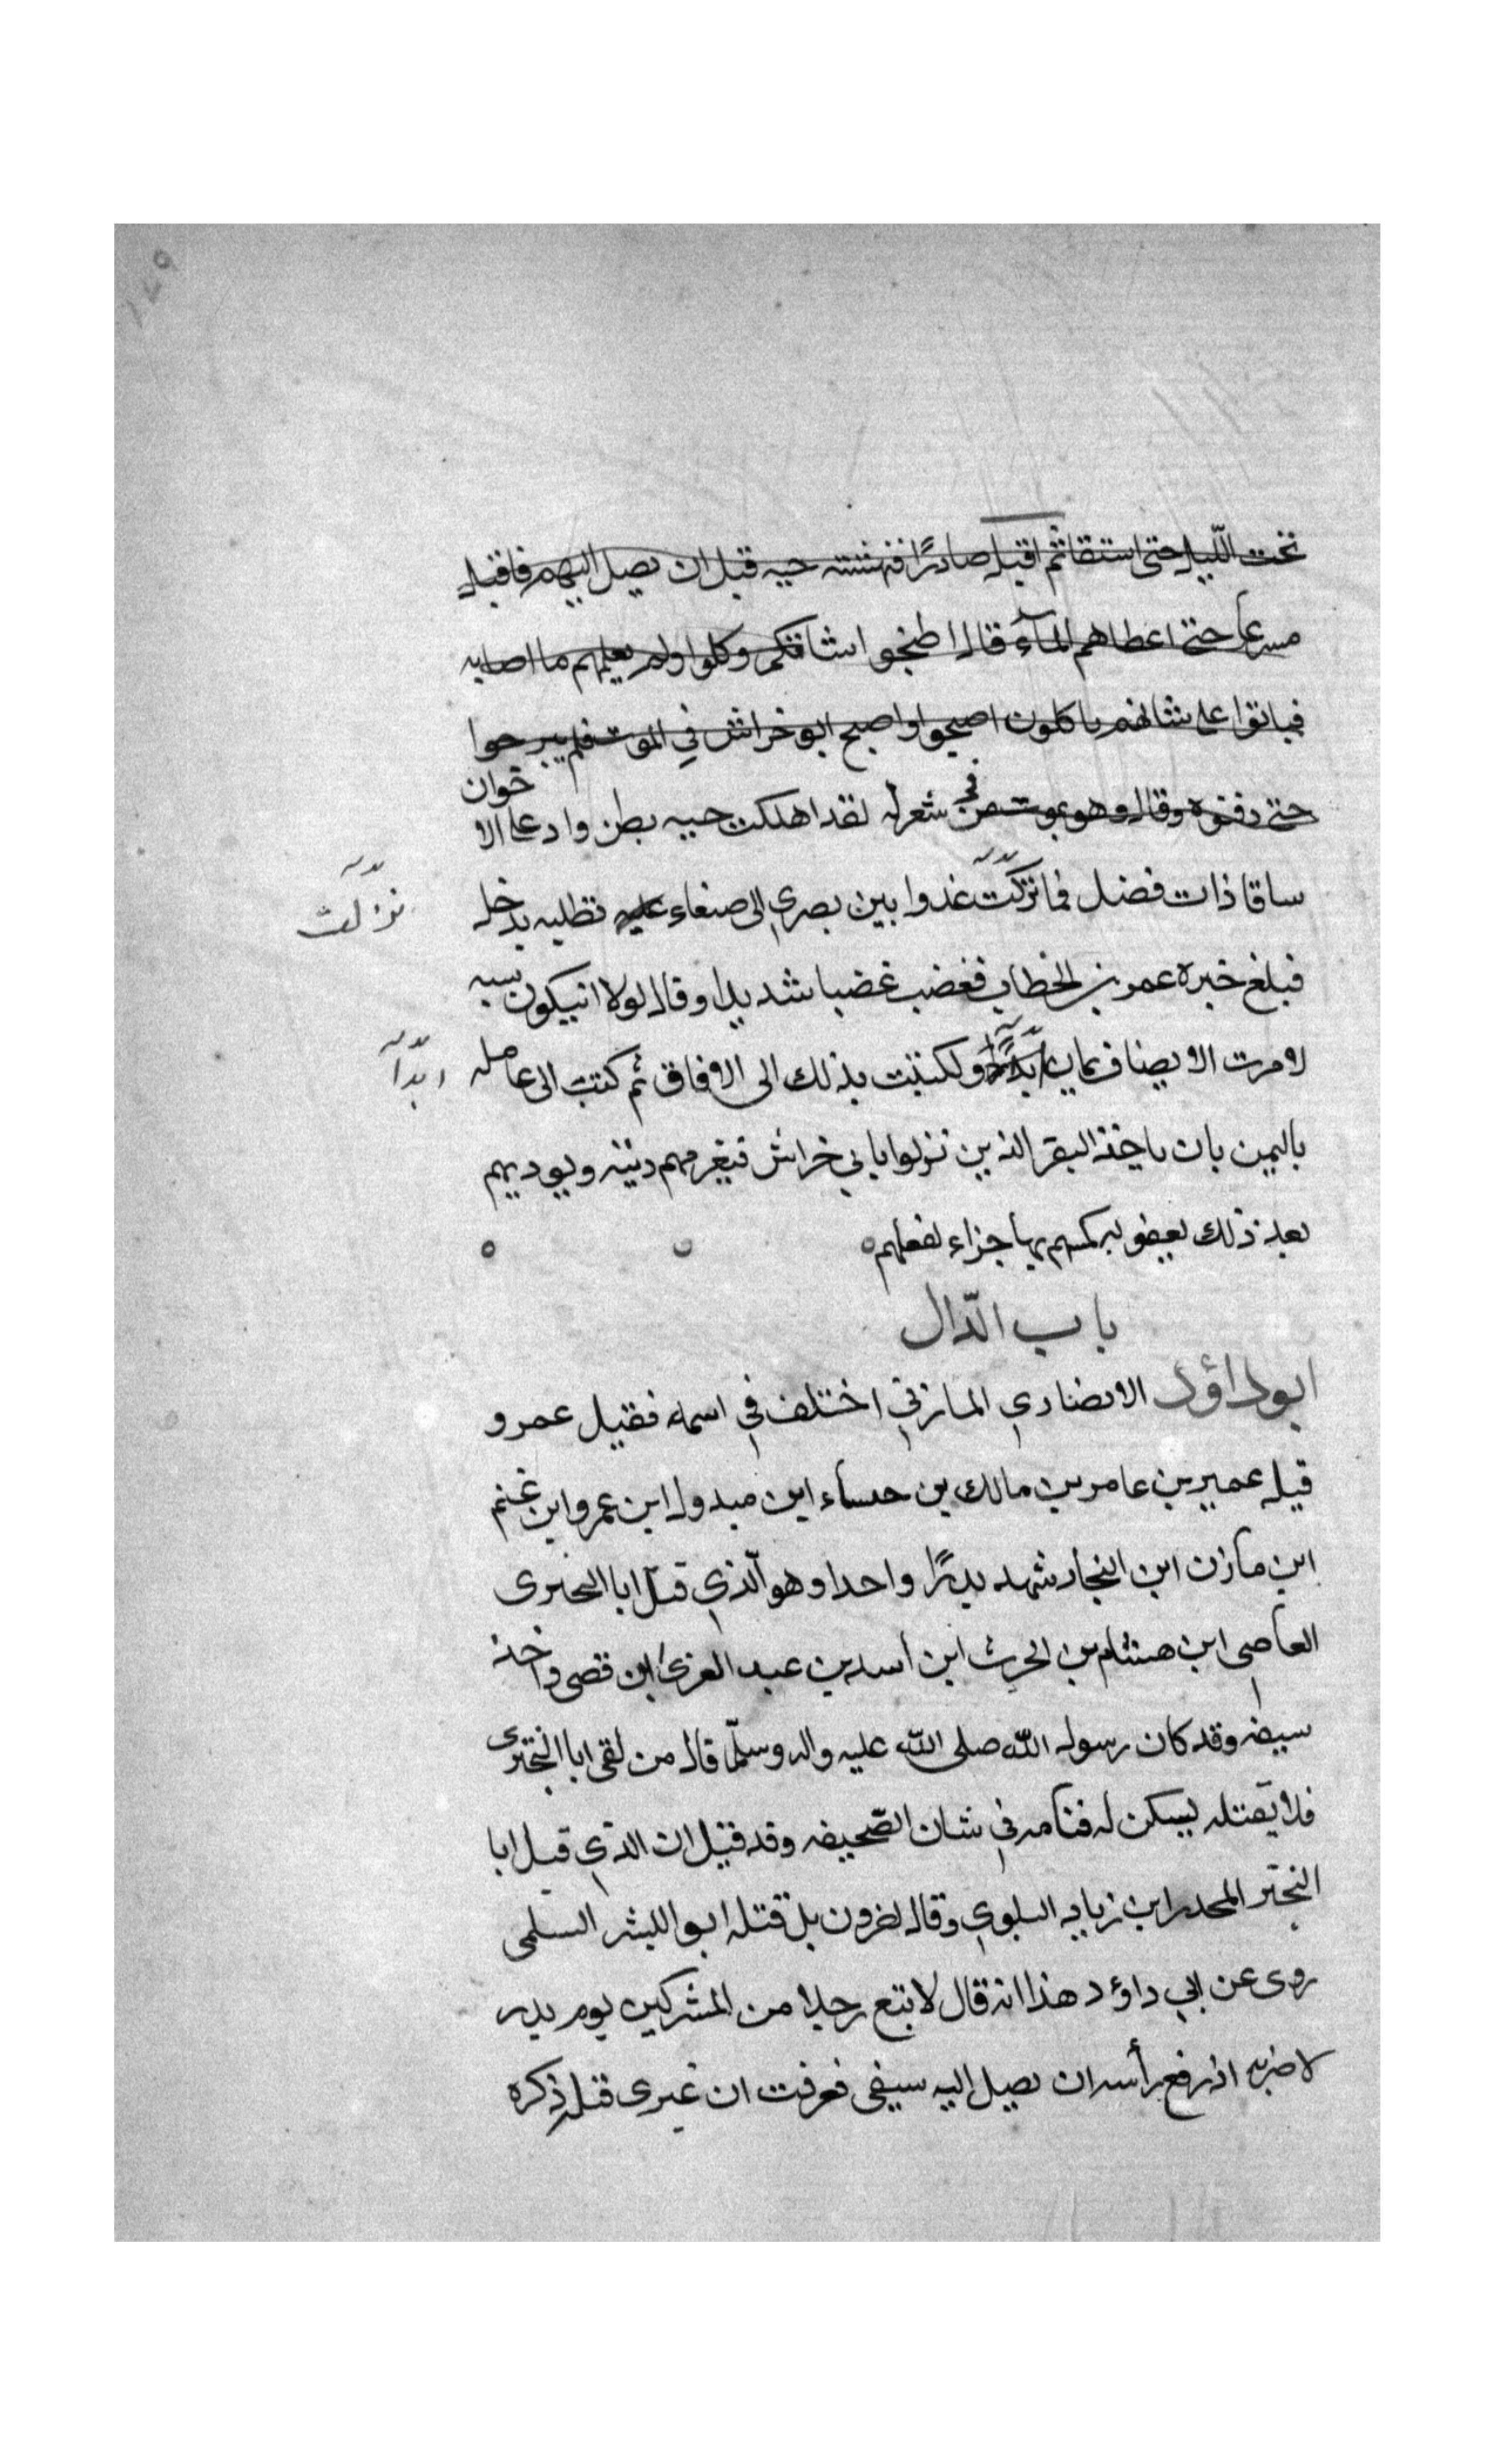 تحت اللّيل حتى استقا ثم اقبل صادرًا فنهشته حيه قبل ان يصل اليهم فاقبل
مسرعا حتى اعطاهم المآء قال اطبخوا شاتكم وكلوا ولم يعلمهم ما اصابه
فباتوا على شانهم ياكلون اصبحوا واصبح ابو خراش في الموت فلم يبرحوا
حتى دفنوه وقال وهو يموت من في شعر له لقد اهلكت حيه بطن واد على الاخوان
ساقا ذات فضل فما تركت عدوا بين بصري الى صنعاء عليه تطلبه بدخل
تركت
فبلغ خبره عمر بن الخطاب فغضب غضبا شديدا وقال لولا ان يكون سبه
لامرت الا يضاف يمان ابدًا ولكتبت بذلك الى الافاق ثم كتب الى عامله
ابدًا
باليمن بان ياخذ النفر الذين نزلوا بابي خراش فيغرمهم ديته ويوديهم
بعد ذلك بعقوبه يمسهم بها جزاء لفعلهم
باب الدّال
ابو داؤد الانصاري المازني اختلف في اسمه فقيل عمرو
قيل عمير بن عامر بن مالك بن خنساء ابن مبدول ابن عمرو ابن غنم
ابن مازن ابن النجار شهد بدرًا واحدا وهو الّذي قتل ابا البختري
العاصي ابن هشام بن الحرث ابن اسد بن عبد العزى ابن قصى واخذ
سيفه وقد كان رسول الله صلى الله عليه واله وسلّم قال من لقى ابا البختري
فلا يقتله ليسكن له قيامه في شان الصّحيفه وقد قيل ان الذي قتل ابا
البختر المجدر ابن زياد البلوي وقال اخرون بل قتله ابو اليشر السلمي
روى عن ابي داؤد هذا انه قال لا تبع رجلا من المشركين يوم بدر
لاضربه اذ رفع رأسه ان يصل اليه سيفي فعرفت ان غيري قتله ذكره